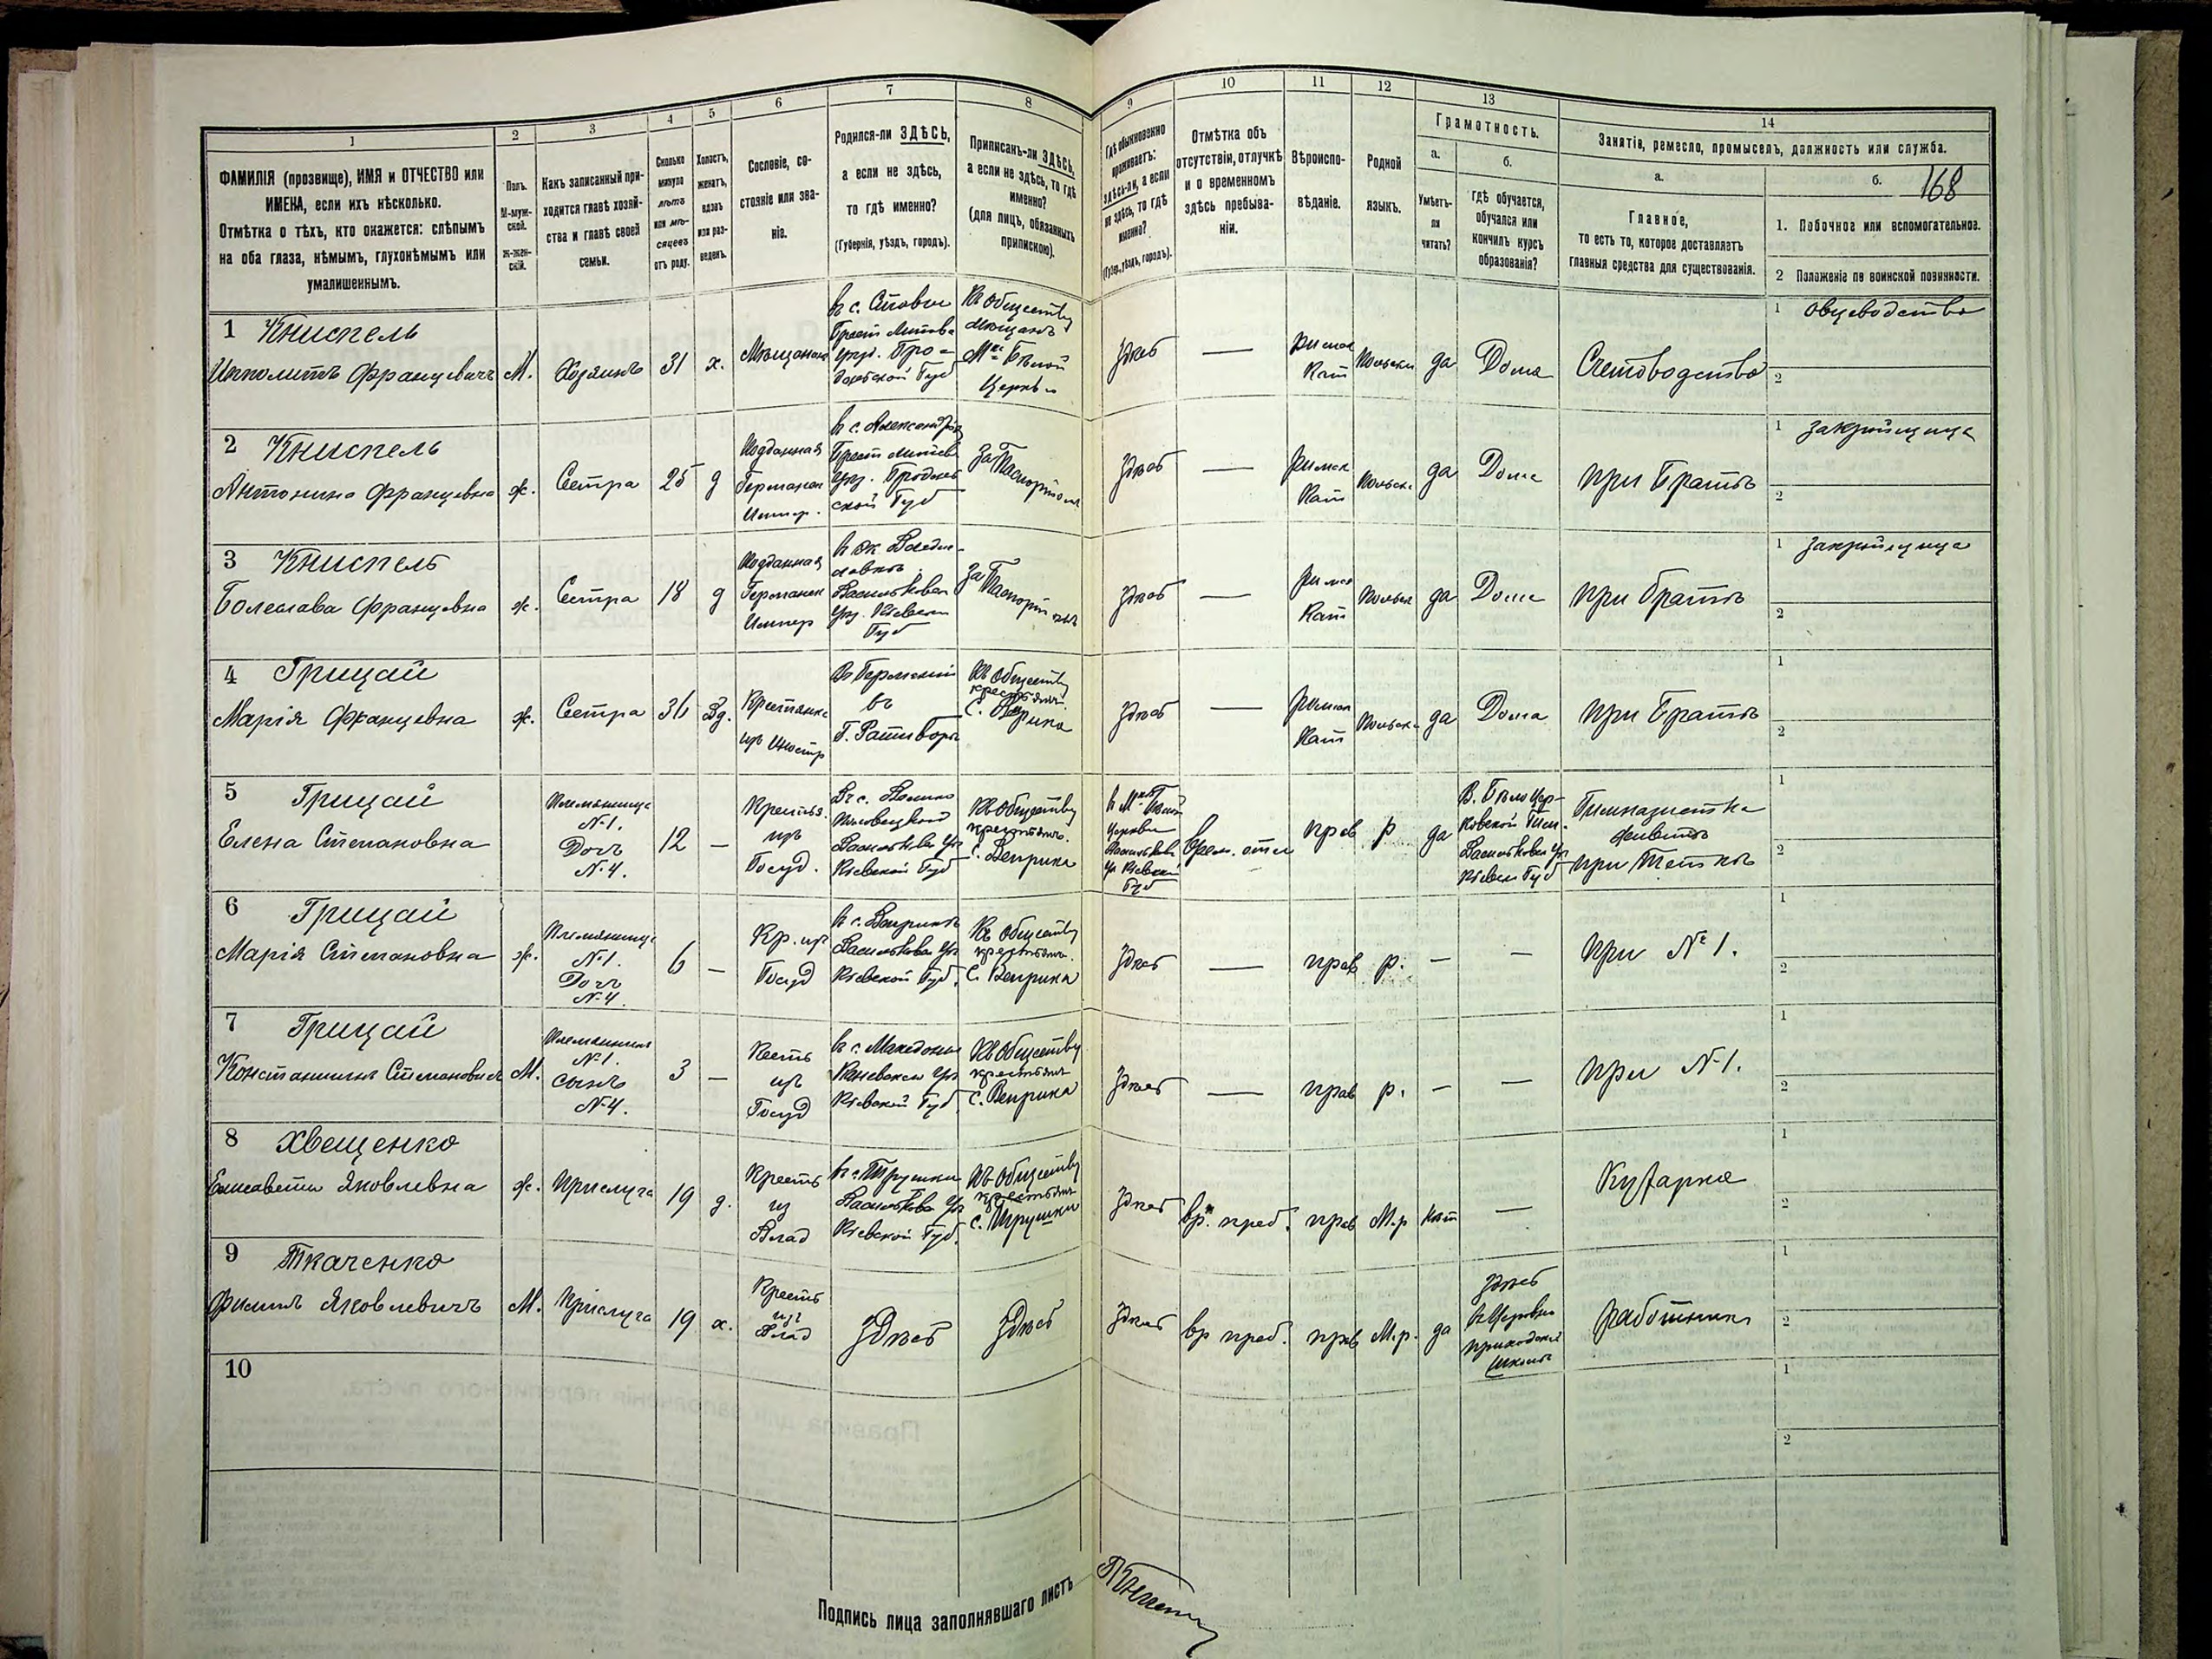 1
2
3
4
5
6
7
8
9
10
11
12
13
14
ФАМИЛІЯ (прозвище), ИМЯ и ОТЧЕСТВО или
ИМЕНА, если ихъ нѣсколько.
Отмѣтка о тѣхъ, кто окажется: слѣпымъ
на оба глаза, нѣмымъ, глухонѣмымъ или
умалишеннымъ.
Полъ.
М-муж-
ской.
Ж-жен-
скій.
Какъ записанный при-
ходится главѣ хозяй-
ства и главѣ своей
семьи.
Сколько
минуло
лѣтъ
или мѣ-
сяцевъ
отъ роду.
Холостъ,
женатъ,
вдовъ
или раз-
веденъ.
Сословіе, со-
стояніе или зва-
ніе.
Родился-ли ЗДѢСЬ,
а если не здѣсь,
то гдѣ именно?
(Губернія, уѣздъ, городъ).
Приписанъ-ли ЗДѢСЬ,
а если не здѣсь, то гдѣ
именно?
(для лицъ, обязанныхъ
припискою).
Гдѣ обыкновенно
проживаетъ:
здѣсь-ли, а если
не здѣсь, то гдѣ
именно?
(Губер., уѣздъ, городъ).
Отмѣтка объ
отсутствіи, отлучкѣ
и о временномъ
здѣсь пребыва-
ніи.
Вѣроиспо-
вѣданіе.
Родной
языкъ.
Грамотность.
а.
Умѣетъ-
ли
читать?
б.
гдѣ обучается,
обучался или
кончилъ курсъ
образованія?
Занятіе, ремесло, промыселъ, должность или служба.
а.
Главное,
то есть то, которое доставляетъ
главныя средства для существованія.
б.
168
1. Побочное или вспомогательное.
2 Положеніе по воинской повинности.
1 Книспель
Ипполитъ Францевичъ
М.
Хозяинъ
31
х.
Мѣщанинъ
Къ Обществу
Мѣщанъ
Церкви
Здѣсь
—
Римск
Кат
Польски
да
Дома
Счетоводство
1 овцеводство
2
2 Книспель
Антонина Францевна
ж.
Сестра
25
д
Подданная
Германск
Импер.
За Паспортомъ
Здѣсь
—
Римск
Кат
Польск
да
Дома
при Братѣ
1 закройщица
2
3 Книспель
Болеслава Францевна
ж.
Сестра
18
д
Подданная
Германск
Импер
Васильковск
Уѣз. Кіевской
Губ
За Паспортомъ
Здѣсь
—
Римск
Кат
Польск
да
Дома
при братѣ
1 закройщица
2
4 Грицай
Марія Францевна
ж.
Сестра
36
Вд.
Крестьянка
изъ Иностр
Въ Германіи
въ
Г. Ратиборъ
Къ Обществу
крестьянъ
Здѣсь
—
Римск
Кат
Польск
да
Дома
при Братѣ
1
2
5 Грицай
Елена Степановна
Племянница
№ 1.
Дочь
№ 4.
12
—
Крестьян
изъ
Госуд.
Васильковск Уѣз
Кіевской Губ
Къ Обществу
крестьянъ
С. Веприка
Церкви
Губ
Врем. отл
прав
р
да
В. Бѣлоцер-
ковской Гим.
Васильков Уѣз
Кіевск Губ
Гимназистка
живетъ
при Теткѣ
1
2
6 Грицай
Марія Степановна
ж.
Племянница
№ 1.
Дочь
№ 4.
6
—
Кр. изъ
Госуд
в с. Веприкѣ
Васильков Уѣз
Кіевской Губ.
Къ Обществу
крестьянъ
С. Веприка
Здѣсь
—
прав
р.
—
—
при № 1.
1
2
7 Грицай
Константинъ Степановичъ
М.
Племянникъ
№ 1.
Сынъ
№ 4.
3
—
Кресть
изъ
Госуд
Каневскаго Уѣз
Кіевской Губ.
Къ Обществу
крестьянъ
С. Веприка
Здѣсь
—
прав
р.
—
—
при № 1.
1
2
8 Хвещенко
Елисавета Яковлевна
ж.
Прислуга
19
д.
Кресть
из
Влад
в с. Трушки
Васильков Уѣз
Кіевской Губ.
Къ Обществу
крестьянъ
с. Трушки
Здѣсь
вр. преб.
прав
М.р
нѣт
—
Кухарка
1
2
9 Ткаченко
Филипъ Яковлевичъ
М.
Прислуга
19
х.
Кресть
изъ
Влад
Здѣсь
Здѣсь
Здѣсь
вр преб.
прав
М.р.
да
Здѣсь
В Церковно
приходской
Школѣ
работникъ
1
2
10
1
2
Подпись лица заполнявшаго листъ